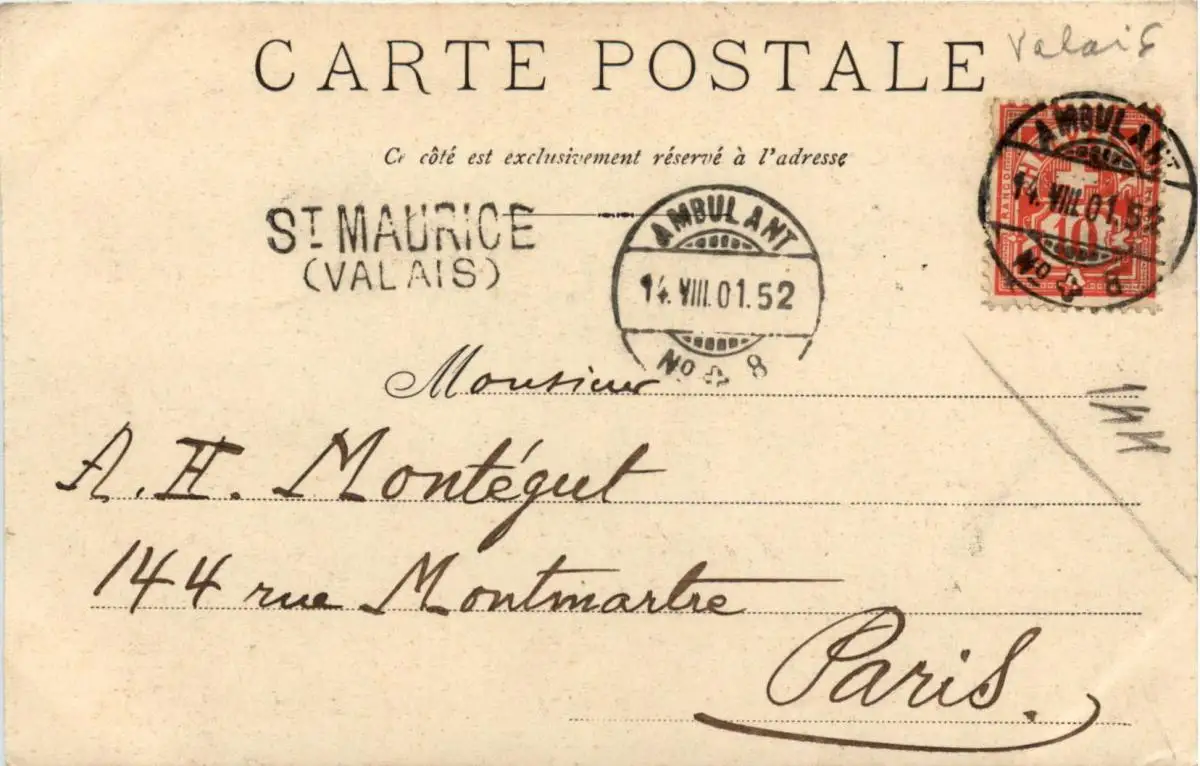 CARTE POSTALE
Valais
Ce côté est exclusivement réservé à l'adresse
ST MAURICE
(VALAIS)
AMBULANT
14.VIII.01.52
No 8
AMBULANT
14.VIII.01.52
No 8
10
Monsieur
A. H. Montégut
144 rue Montmartre
Paris.